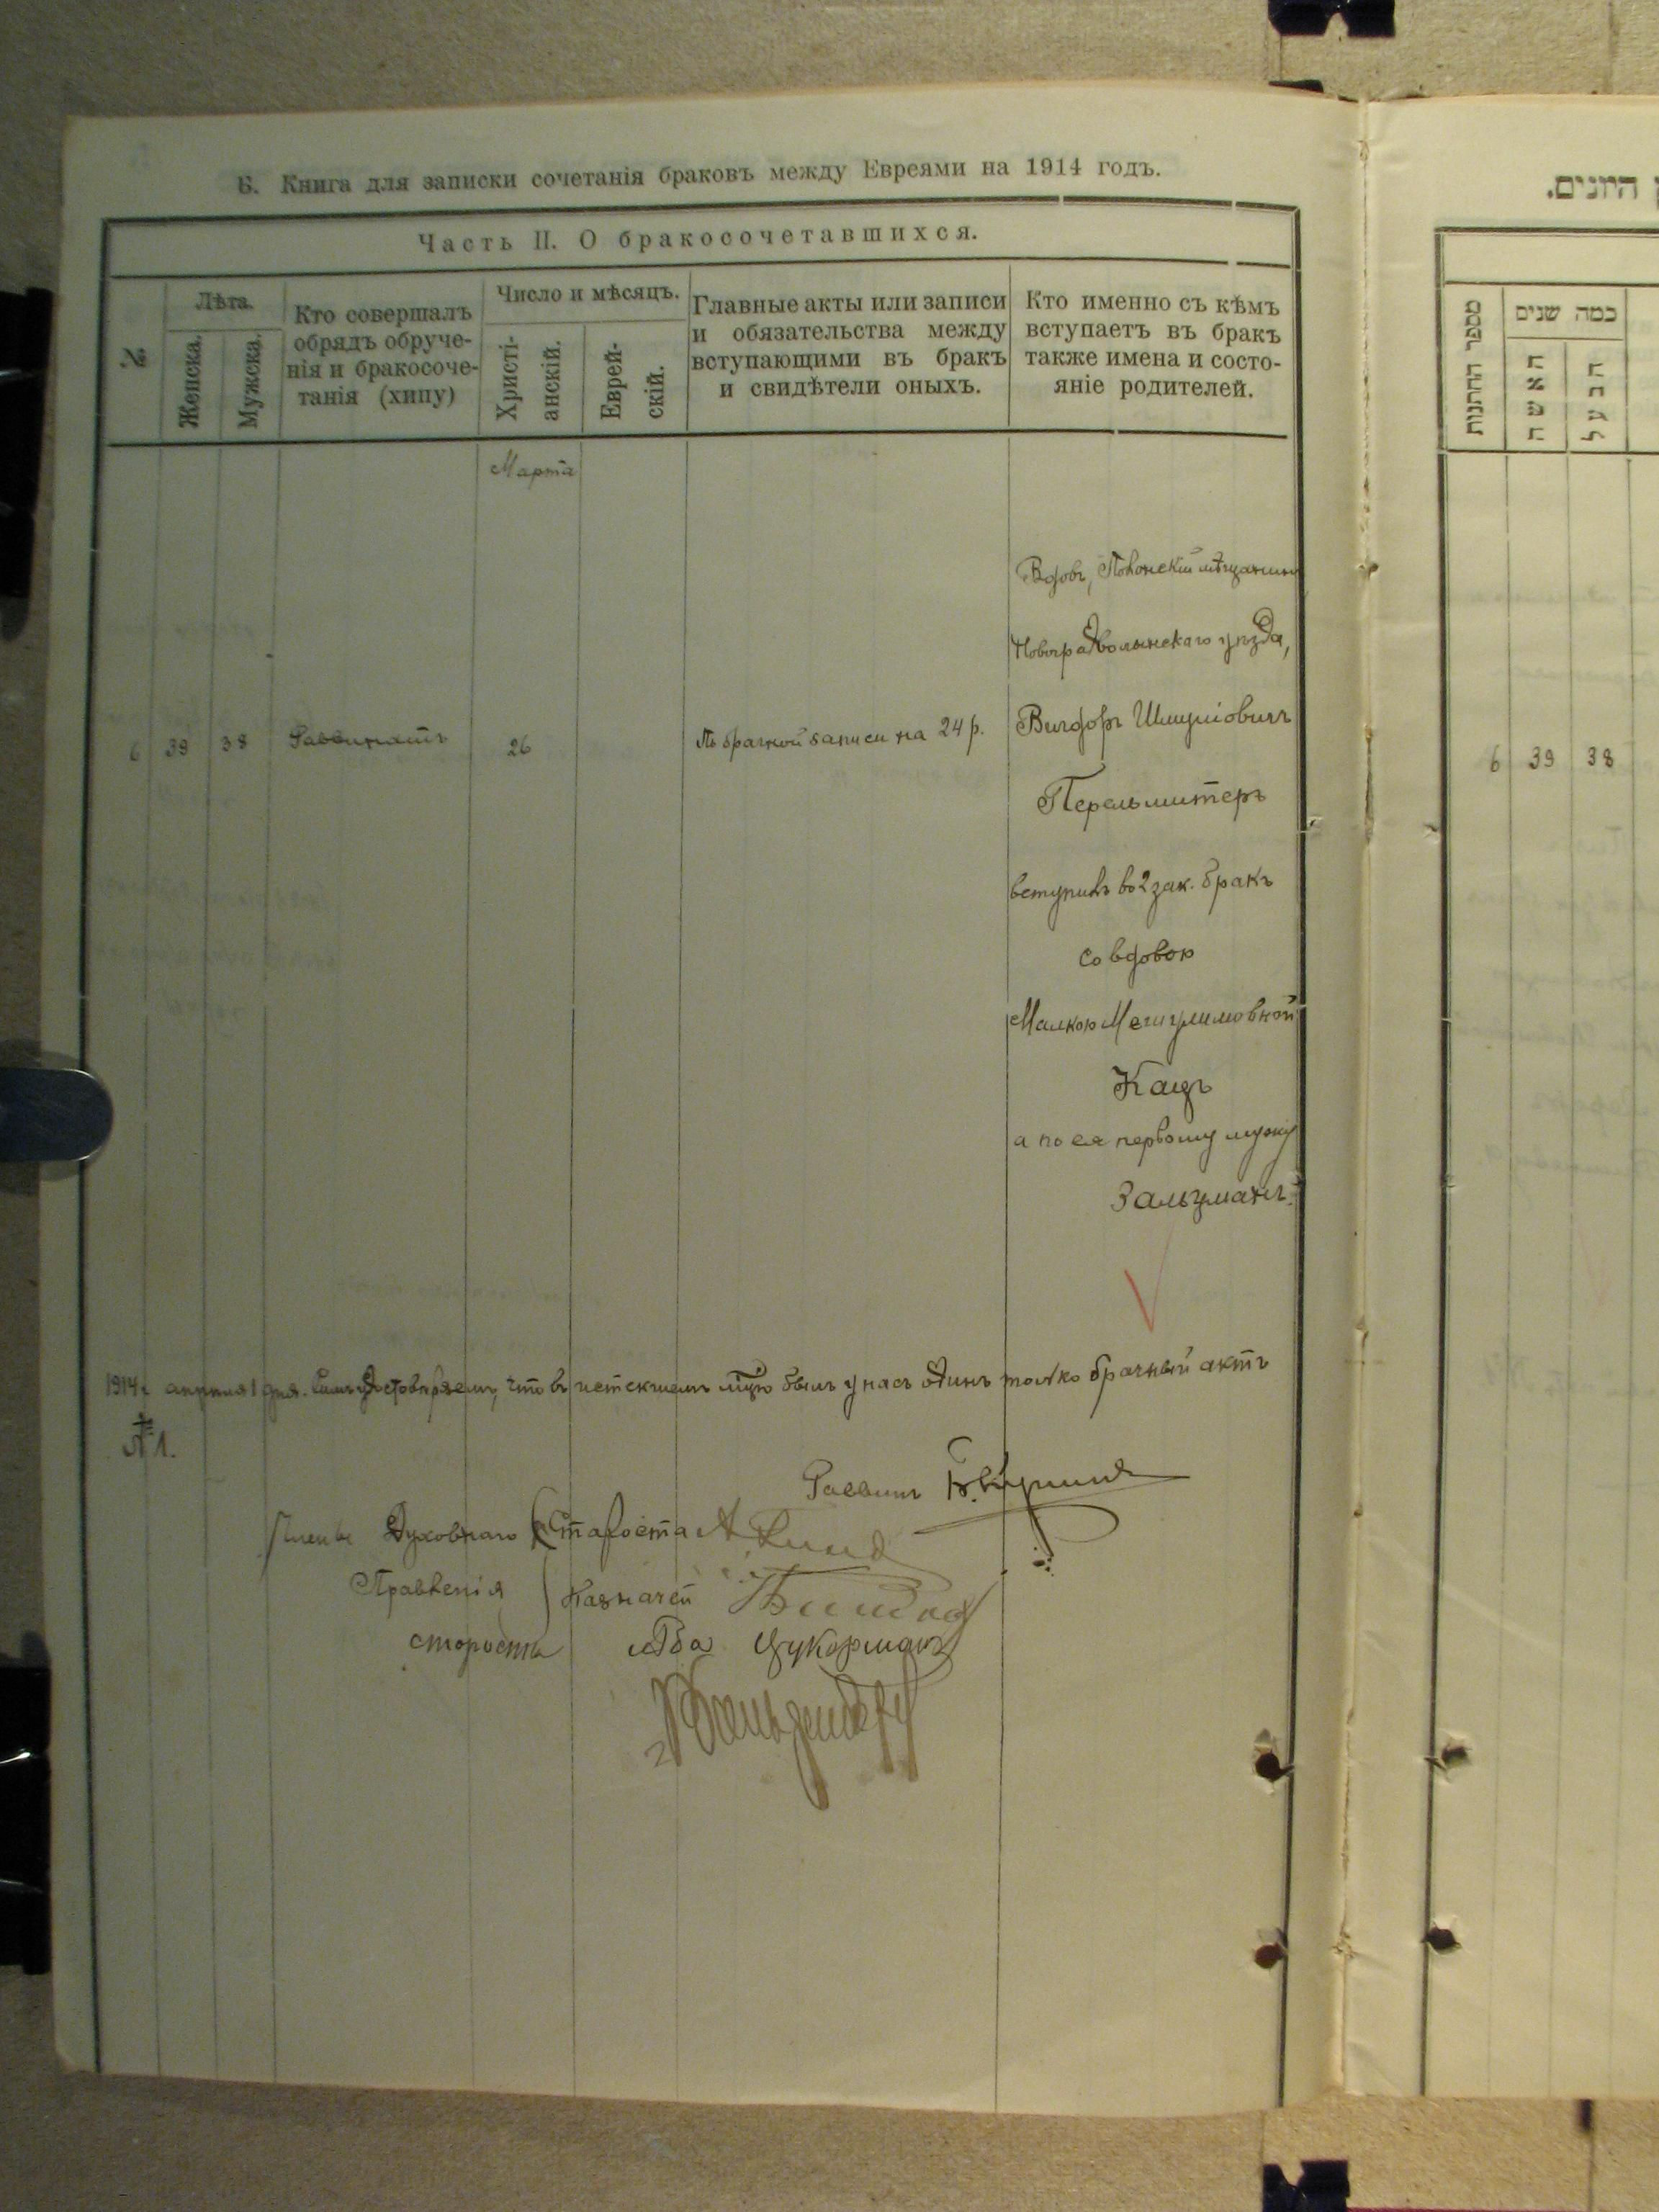 Б. Книга для записки сочетанія браковъ между Евреями на 1914 годъ.
Часть II. О бракосочетавшихся.
№
Лѣта.
Женска.
Мужска.
Кто совершалъ
обрядъ обруче-
нія и бракосоче-
танія (хипу)
Число и мѣсяцъ.
Христі-
анскій.
Еврей-
скій.
Главные акты или записи
и обязательства между
вступающими въ бракъ
и свидѣтели оныхъ.
Кто именно съ кѣмъ
вступаетъ въ бракъ
также имена и состо-
яніе родителей.
Марта
6 39 38 Раввинатъ 26
По брачной записи на 24 р.
Вдовъ, Полонскій мѣщанинъ
Новоградволынскаго уѣзда,
Вигдоръ Шмуліовичъ
Перельмитеръ
вступилъ во 2 зак. бракъ
со вдовою
Малкою Мешулимовной
Кацъ
а по ея первому мужу
Зальцманъ.
1914 г. апрѣля 1 дня. Симъ удостовѣряемъ, что въ истекшемъ мцѣ былъ у насъ одинъ только брачный актъ
№ 1.
Раввинъ
Члены Духовнаго Староста А.
Правленія Казначей
староста Цукорманъ
היונים.
מספר החתנות
כמה שנים
האשה
הבעל
6 39 38